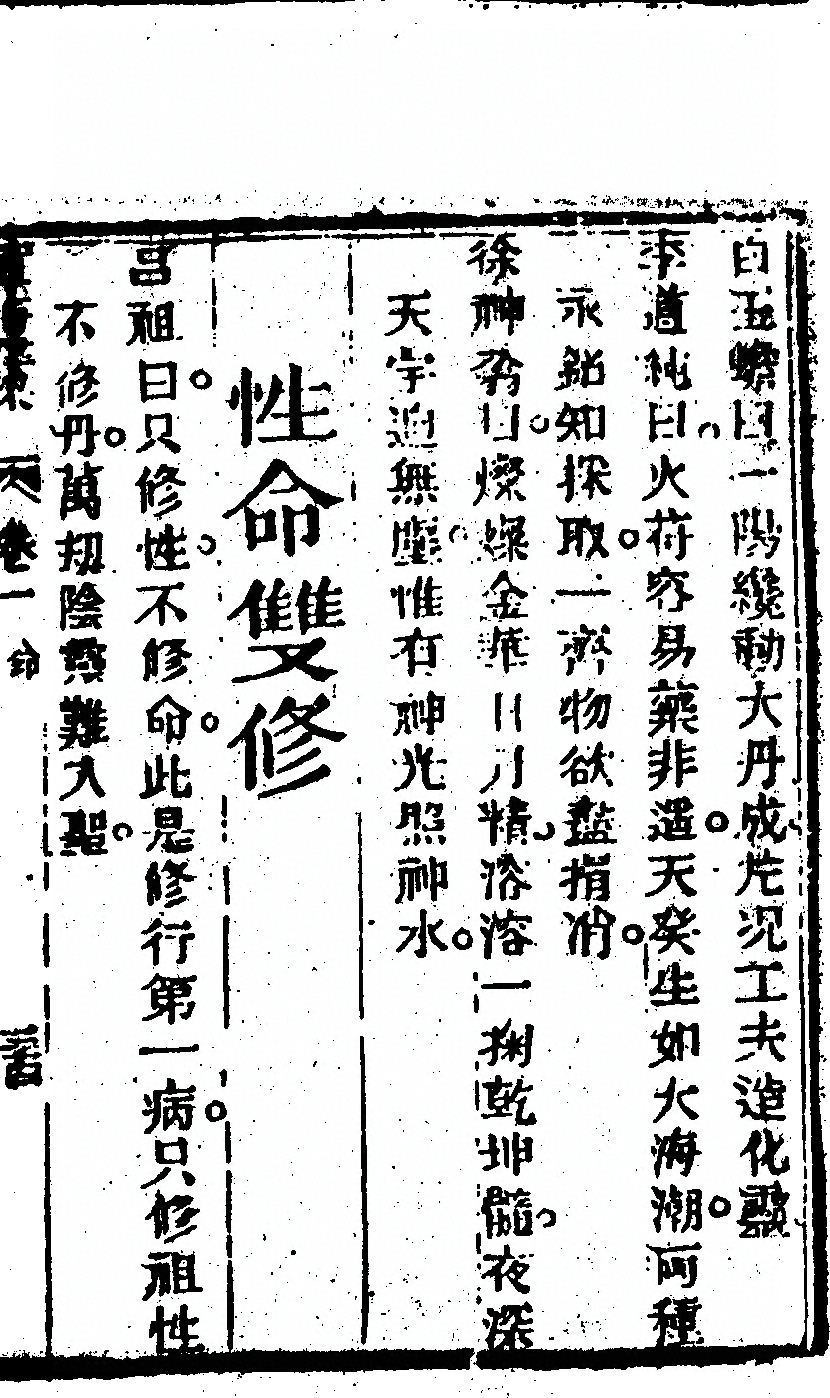 白玉蟾曰一陽纔動大丹成片况工夫造化靈
李道純曰火符容易藥非遥天癸生如大海潮兩種
汞鉛知採取一齊物欲盡捐消
徐神翁曰燦燦金華日月精溶溶一掬乾坤髓夜深
天宇迥無塵惟有神光照神水
性命雙修
呂祖曰只修性不修命此是修行第一病只修祖性
不修丹萬刼陰靈難入聖
卷一